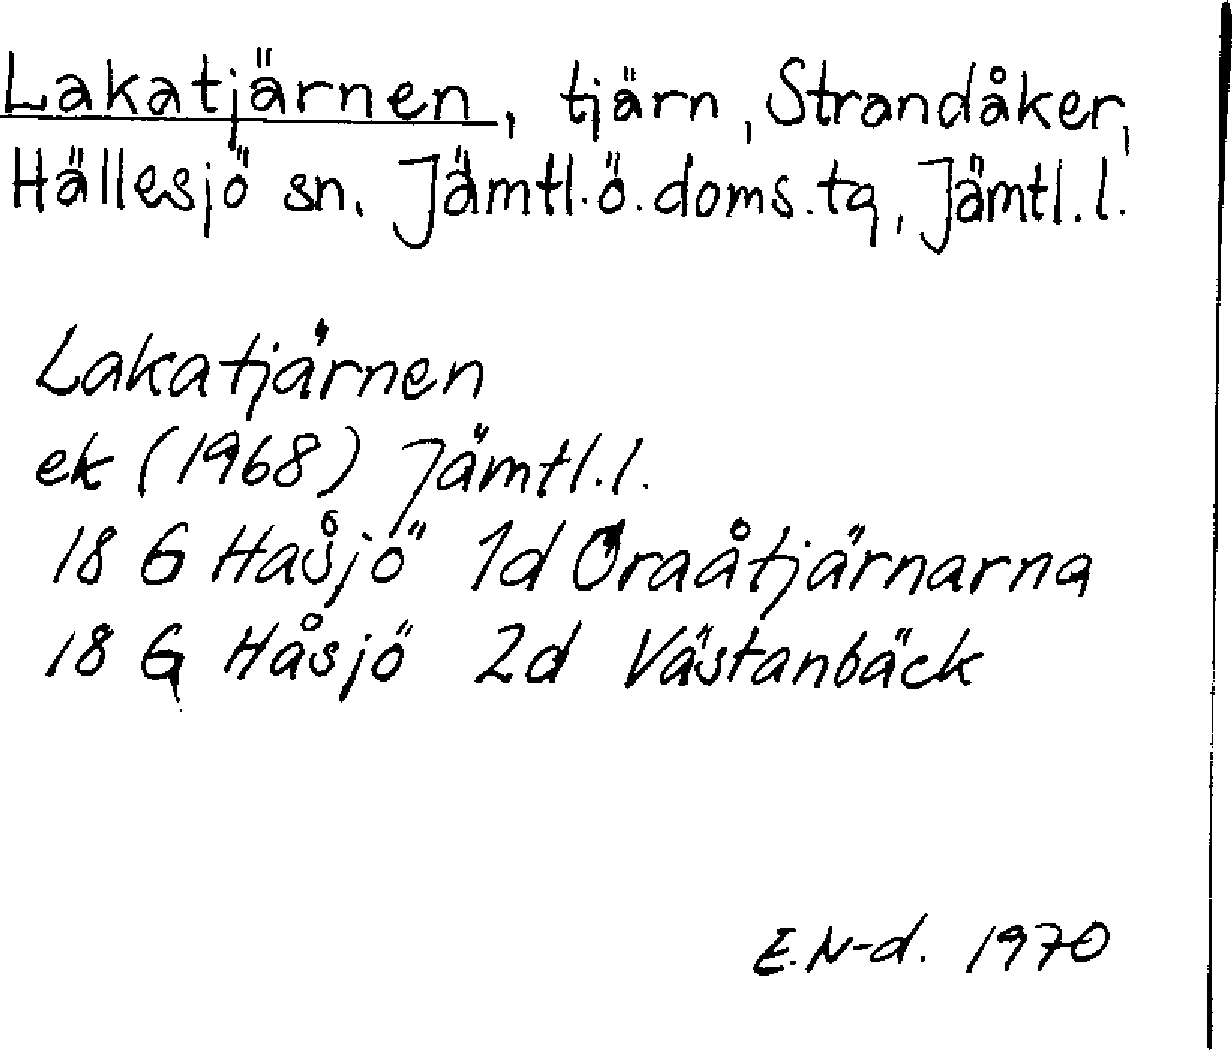 Lakatjärnen, tjärn, Strandåker,
Hällesjö sn. Jämtl.ö.doms.tq, Jämtl.l.
Lakatjärnen
ek (1968) Jämtl.l.
18 G Håsjö 1d Oraåtjärnarna
18 G Håsjö 2d Västanbäck
E.N-d. 1970